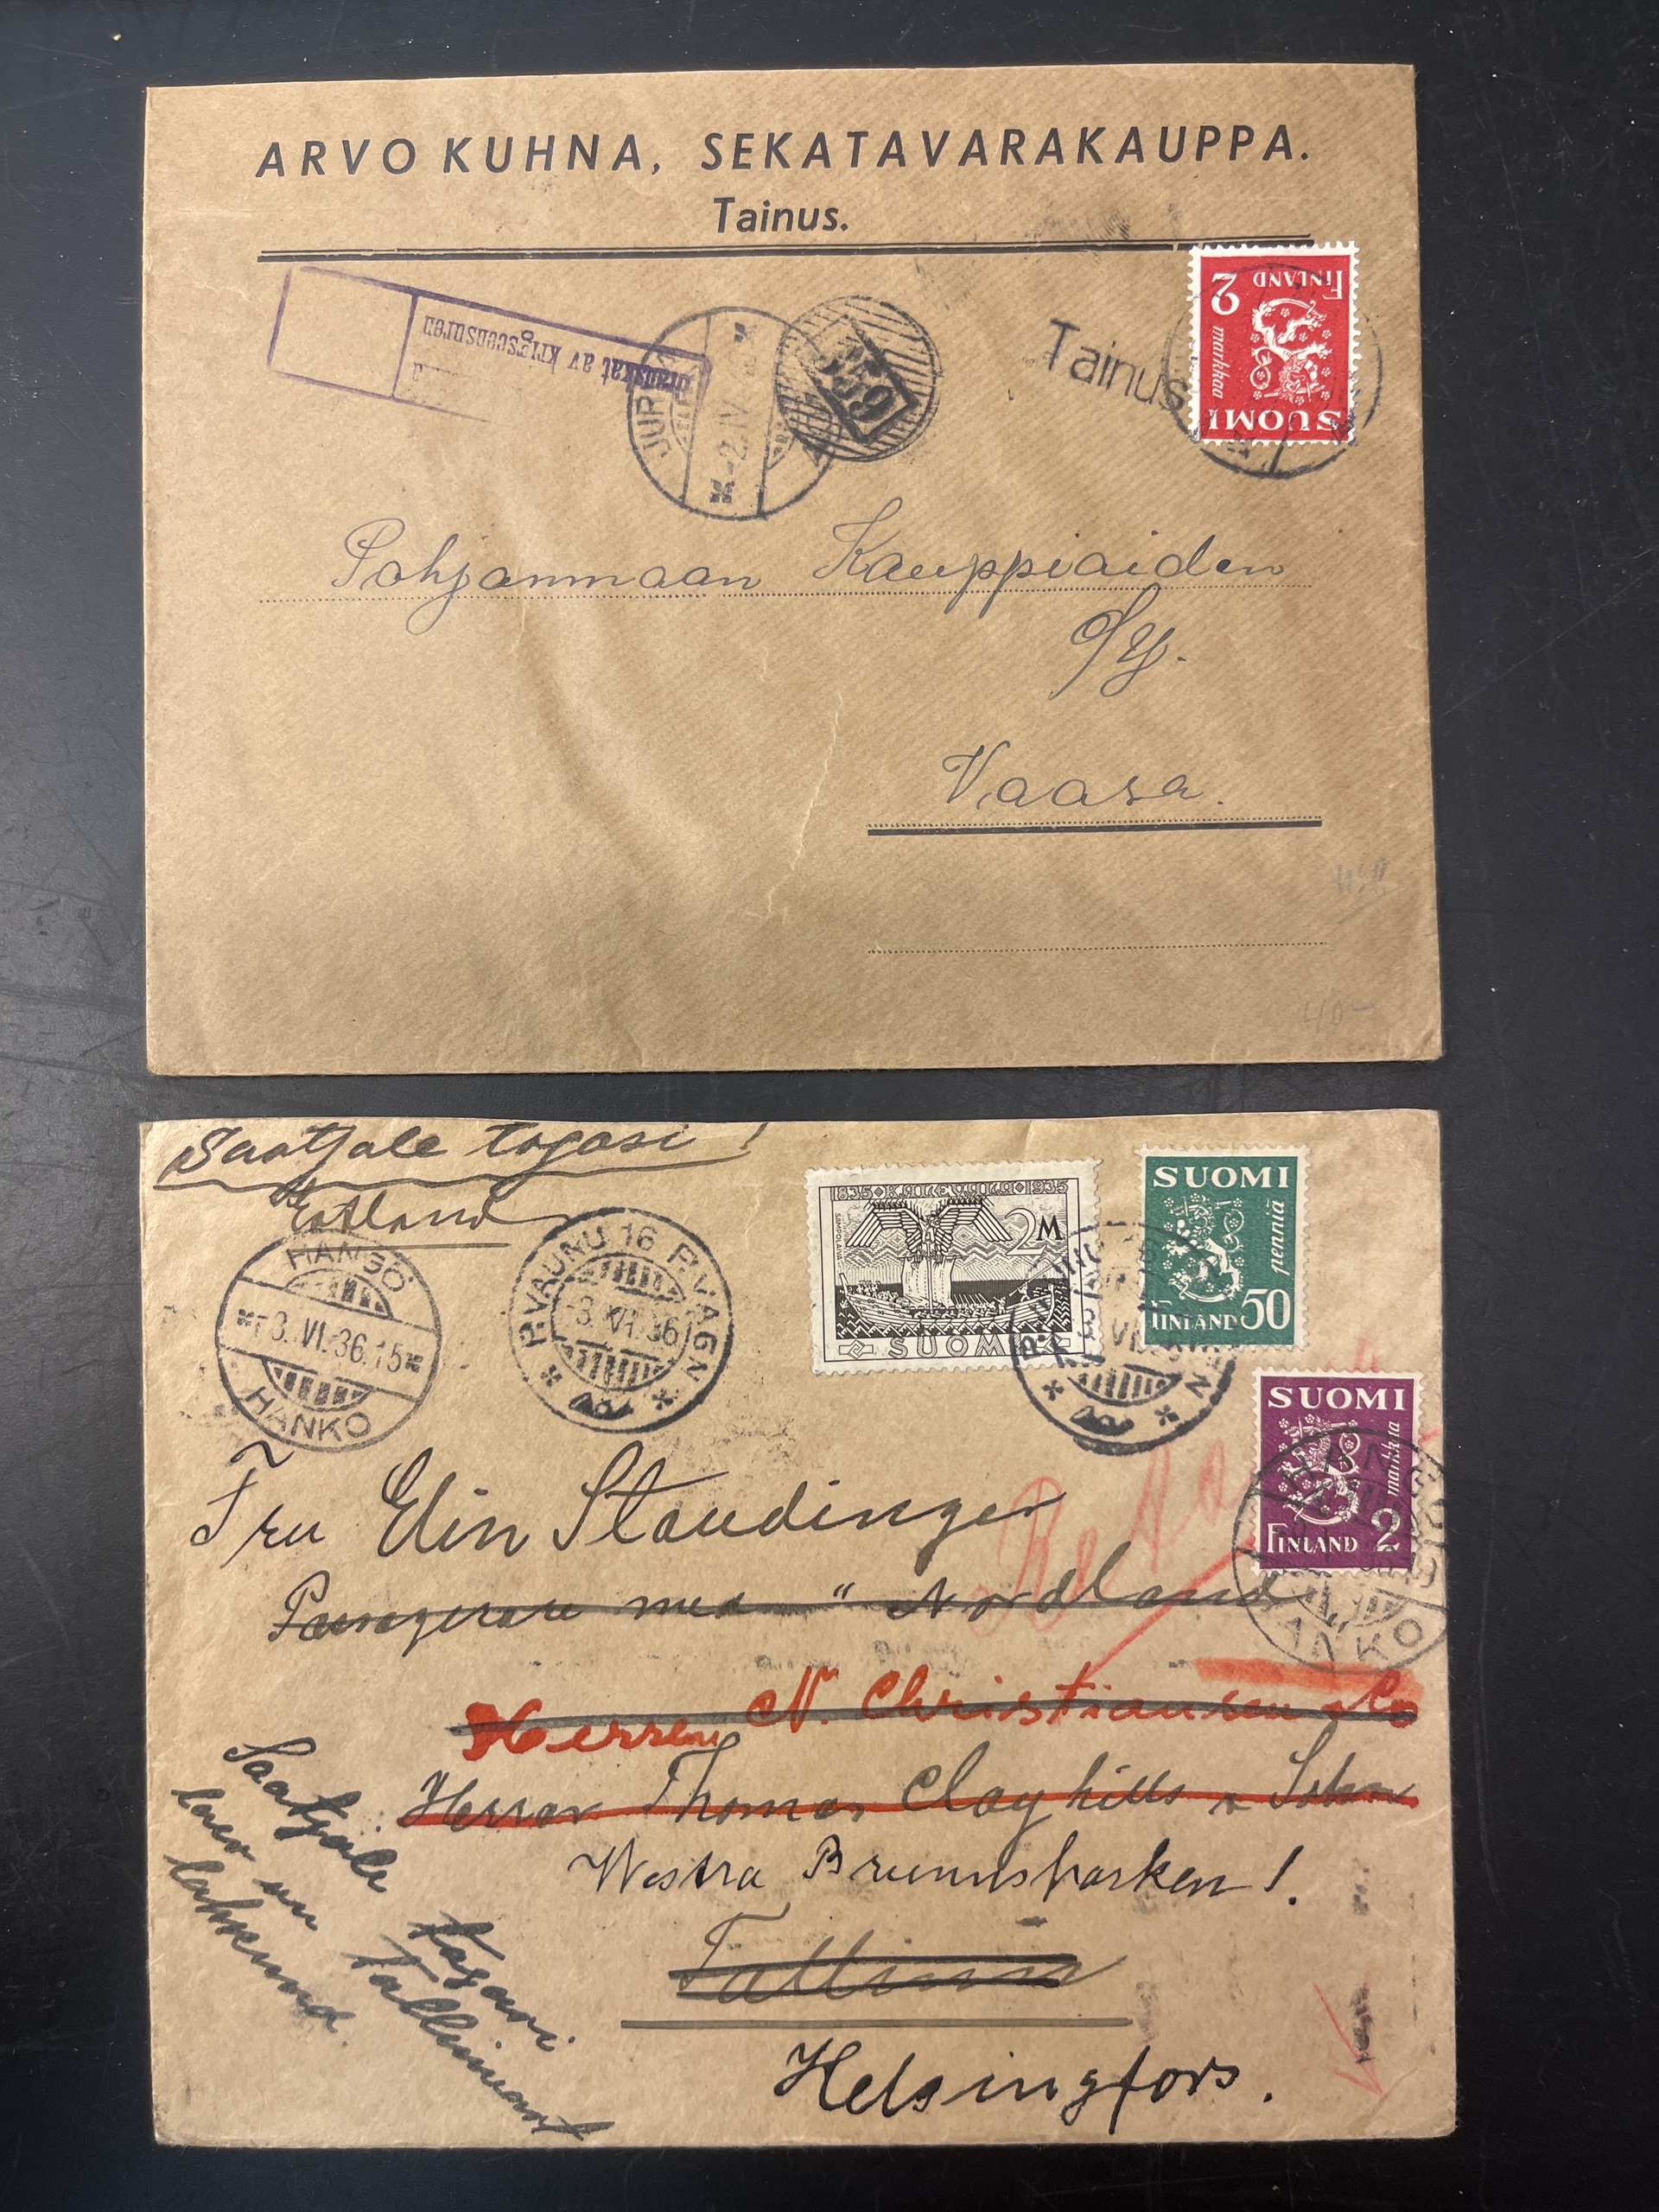 ARVO KUHNA, SEKATAVARAKAUPPA.
Tainus.
granskat av krigscensuren
JUR
2.IV
4
559
Tainus
SUOMI
2 markkaa
FINLAND
Pohjanmaan Kauppiaiden
O/Y.
Vaasa.
40-
Saatjale tagasi!
Estland
HANGÖ
-3.VI.36.15
HANKO
P.VAUNU 16 P.VAGN
-3.VI.36
1835 KALEVALA 1935
2 M
SUOMI
SUOMI
50 penniä
FINLAND
SUOMI
2 markkaa
FINLAND
HANKO
Retour
Fru Elin Staudinger
Passagerare med "Nordland"
Herren N. Christiansen & Co
Herrar Thomas Clayhills & Sohn
Westra Brunnsparken 1.
Tallinn
Helsingfors.
Saatjale tagasi
Tallinnast
lahkunud.